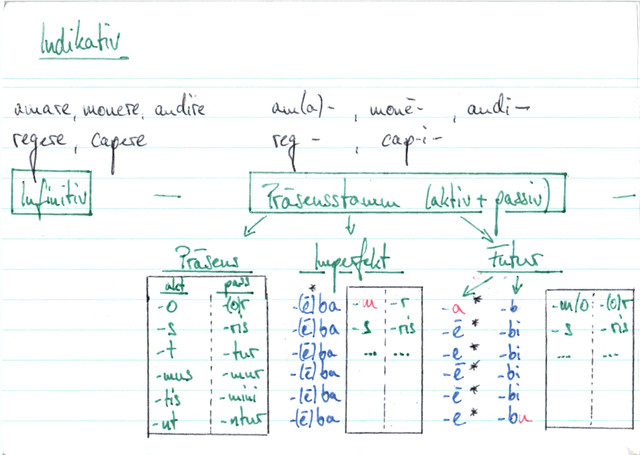 Indikativ
amare, monere, andire am(a)- , monē- , audi-
regere, capere reg - , cap-i-
Infinitiv — Präsensstamm (aktiv + passiv) —
Präsens Imperfekt Futur
akt pass
-o -(o)r -(ē)*ba -m -r -a* -b -m/o -(o)r
-s -ris -(ē)ba -s -ris -ē* -bi -s -ris
-t -tur -(ē)ba ... ... -e* -bi ... ...
-mus -mur -(ē)ba -ē* -bi
-tis -mini -(ē)ba -ē* -bi
-nt -ntur -(ē)ba -e* -bu